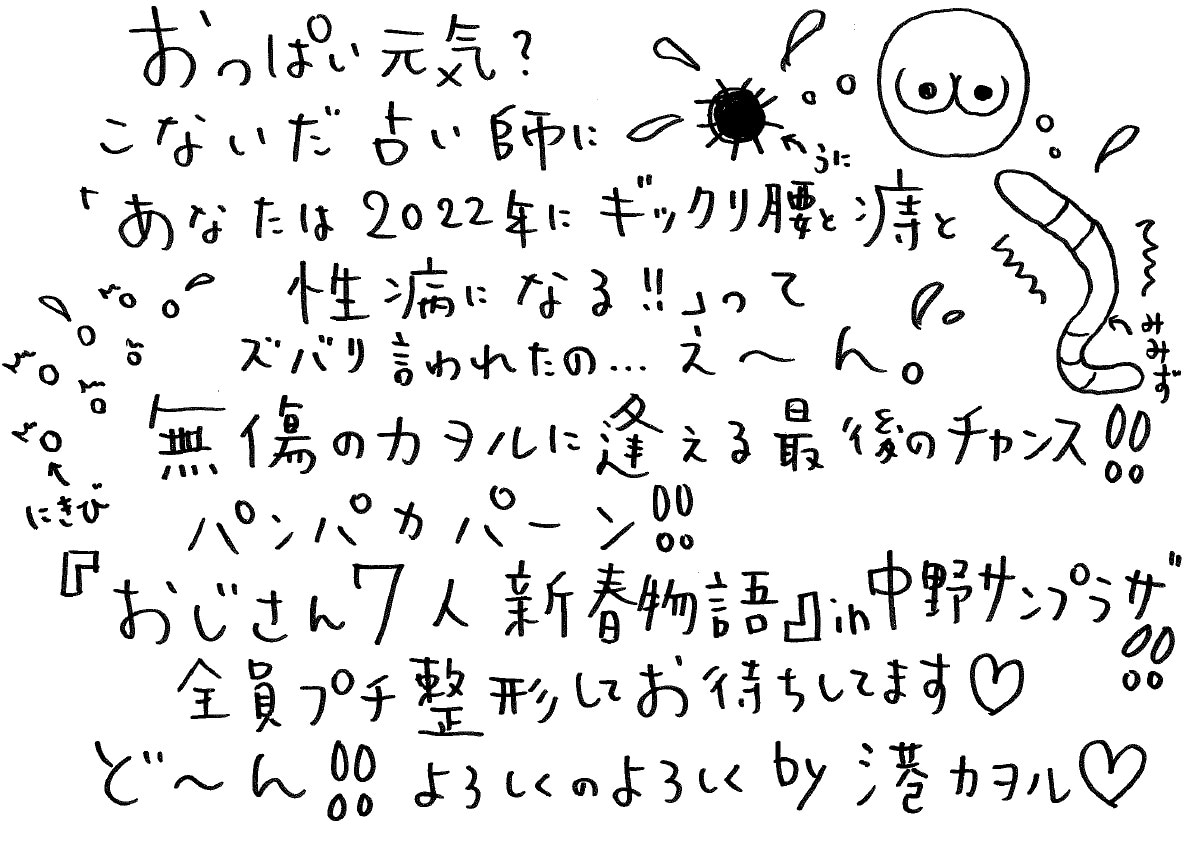 おっぱい元気?
こないだ占い師に
うに
「あなたは2022年にギックリ腰と痔と
性病になる!!」って
ズバリ言われたの…え〜ん。
みみず
無傷のカヲルに逢える最後のチャンス!!
にきび
パンパカパーン!!
『おじさん7人新春物語』in中野サンプラザ!!
全員プチ整形してお待ちしてます♡
ど〜ん!!よろしくのよろしくby港カヲル♡